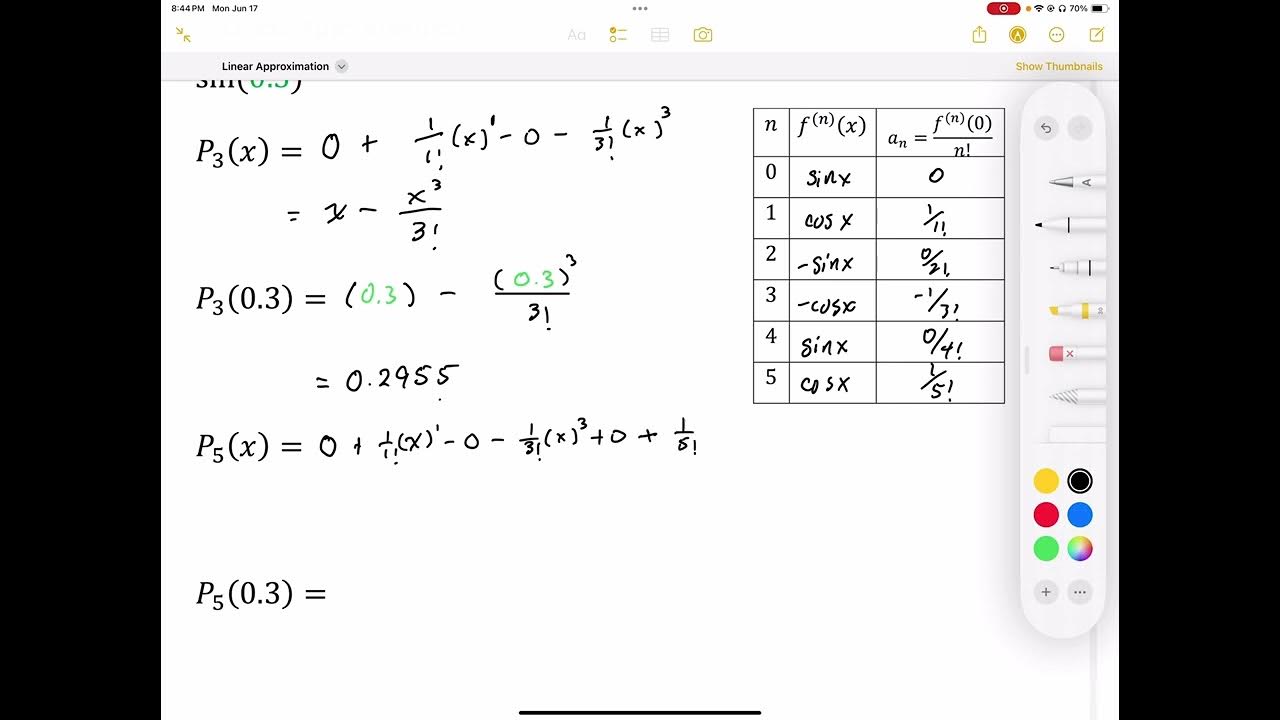 8:44 PM Mon Jun 17
70%
Aa
Linear Approximation
Show Thumbnails
sin(0.3)
P₃(x) = 0 + 1/1! (x)¹ - 0 - 1/3! (x)³
= x - x³/3!
P₃(0.3) = (0.3) - (0.3)³/3!
= 0.2955
P₅(x) = 0 + 1/1! (x)¹ - 0 - 1/3! (x)³ + 0 + 1/5!
P₅(0.3) =
n f⁽ⁿ⁾(x) aₙ = f⁽ⁿ⁾(0)/n!
0 sinx 0
1 cosx 1/1!
2 -sinx 0/2!
3 -cosx -1/3!
4 sinx 0/4!
5 cosx 1/5!
A